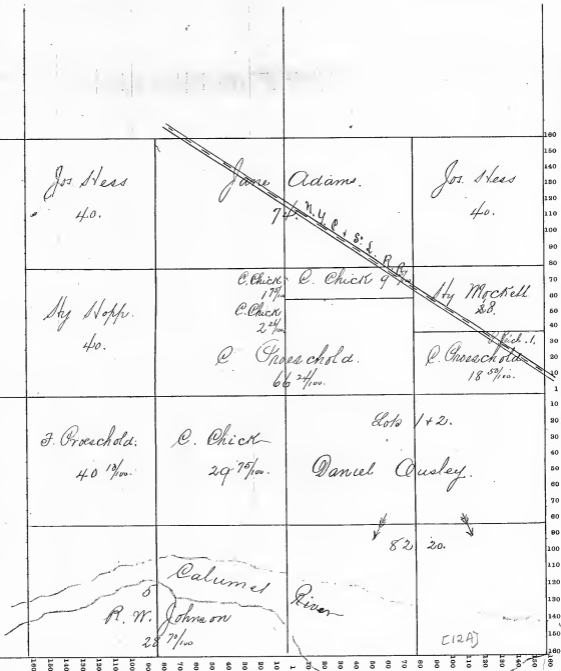 Jos Hess
40.
Jane Adams.
74.
Jos. Hess
40.
N. Y. C & S. L. R. R.
C. Chick
1 75/100
C. Chick 9
Hy Mockell
28.
Hy Hopp.
40.
C. Chick
C. Proeschold.
66 24/100.
C. Proeschold
18 50/100.
F. Proeschold.
40 10/100.
C. Chick
29 75/100.
Lots 1+2.
Daniel Ousley.
82 20.
Calumet River
R. W. Johnson
28 70/100
[12A]
160
150
140
130
120
110
100
90
80
70
60
50
40
30
20
10
1
10
20
30
40
50
60
70
80
90
100
110
120
130
140
150
160
160 150 140 130 120 110 100 90 80 70 60 50 40 30 20 10 1 10 20 30 40 50 60 70 80 90 100 110 120 130 140 150 160